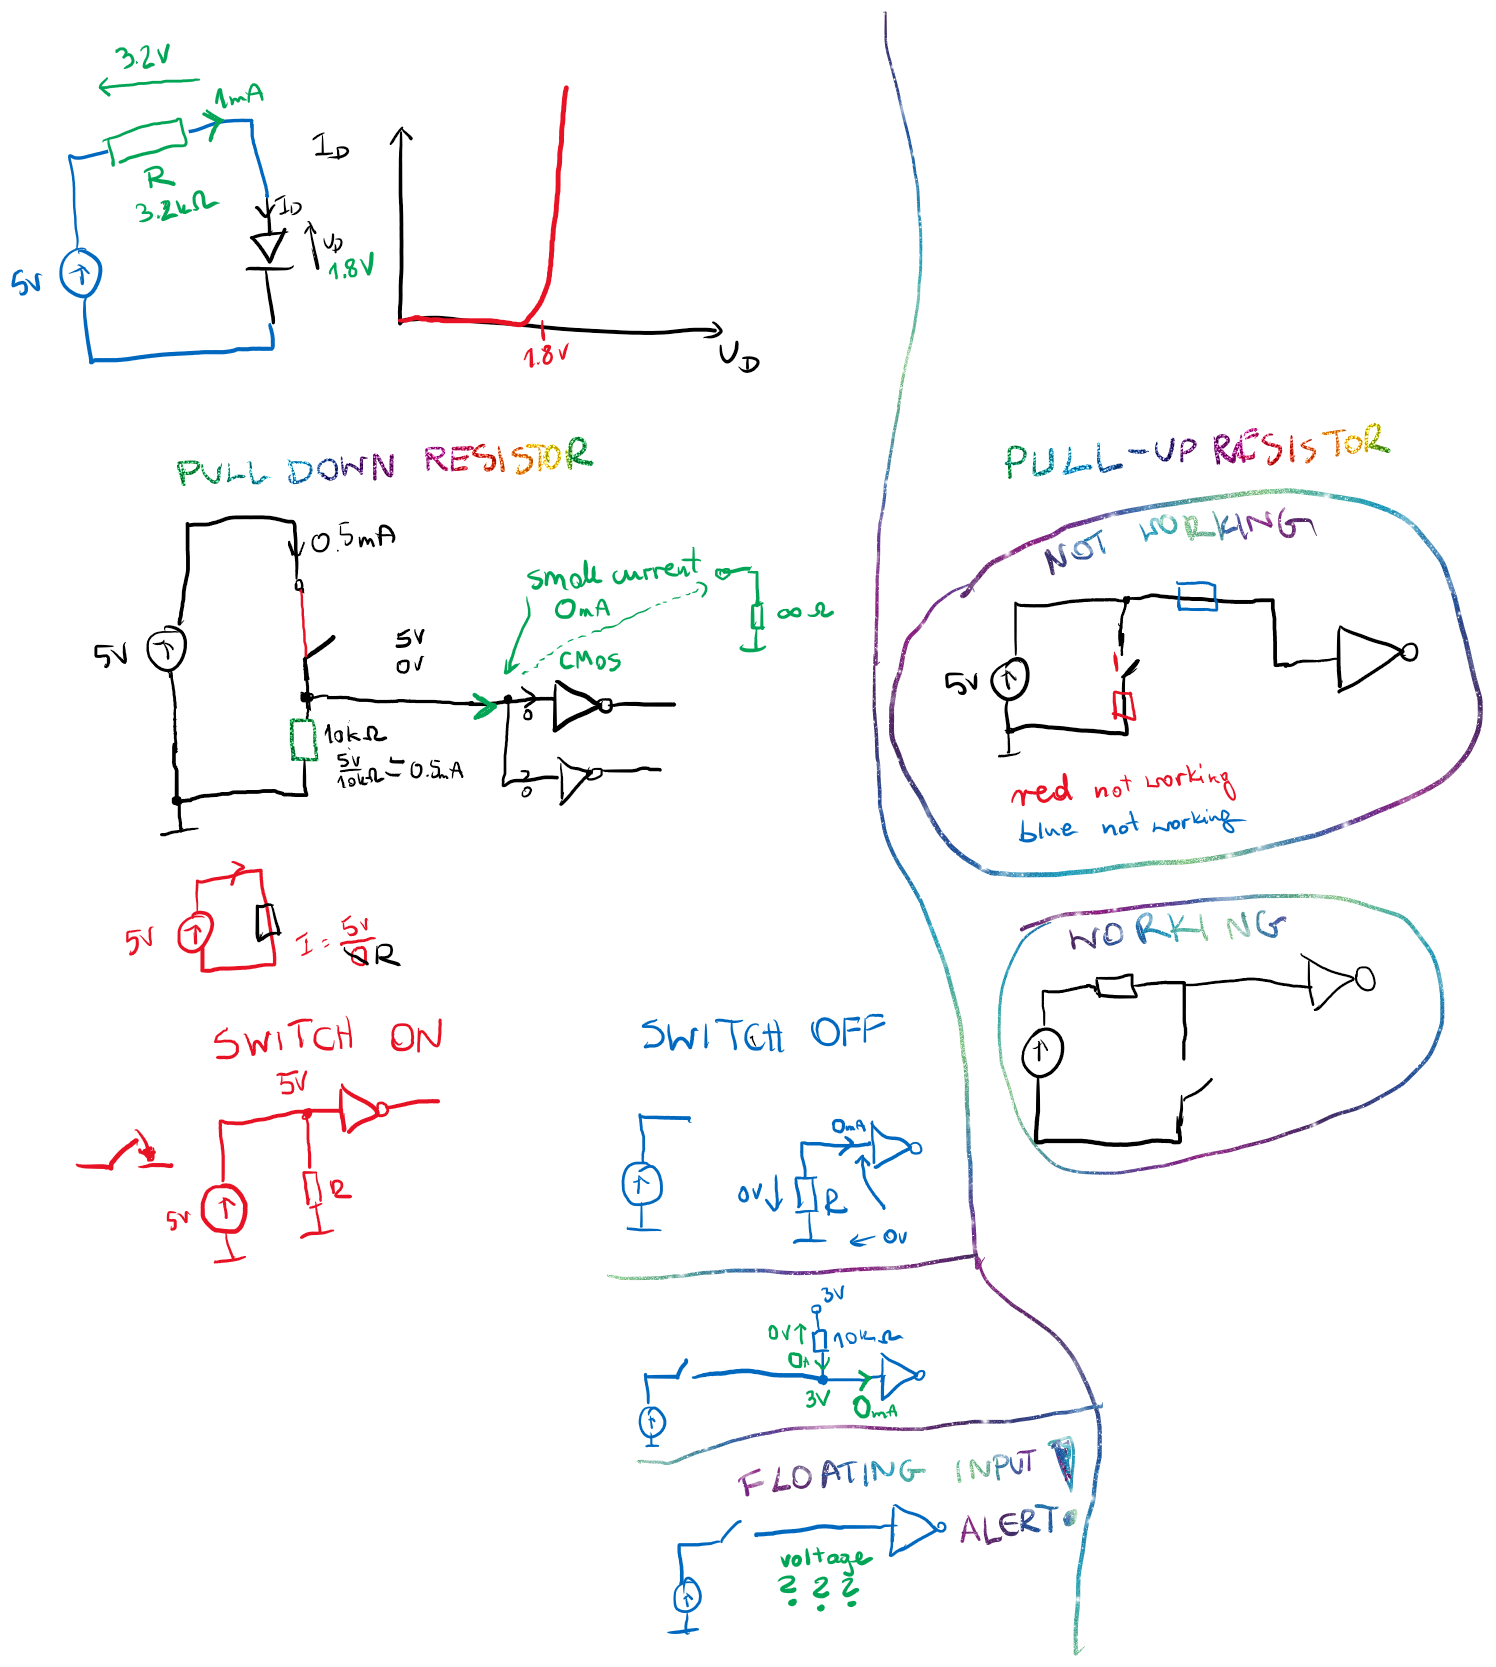 3.2V
1mA
R
3.2kΩ
I_D
U_D
1.8V
5V
I_D
1.8V
U_D
PULL DOWN RESISTOR
0.5mA
5V
5V
0V
small current
0mA
∞Ω
CMOS
0
0
10kΩ
5V/10kΩ = 0.5mA
5V
I = 5V/0R
SWITCH ON
5V
5V
R
SWITCH OFF
0mA
0V↓
R
← 0V
3V
0V↑
10kΩ
0A
3V
0mA
FLOATING INPUT !
ALERT
voltage
? ? ?
PULL-UP RESISTOR
NOT WORKING
5V
red not working
blue not working
WORKING